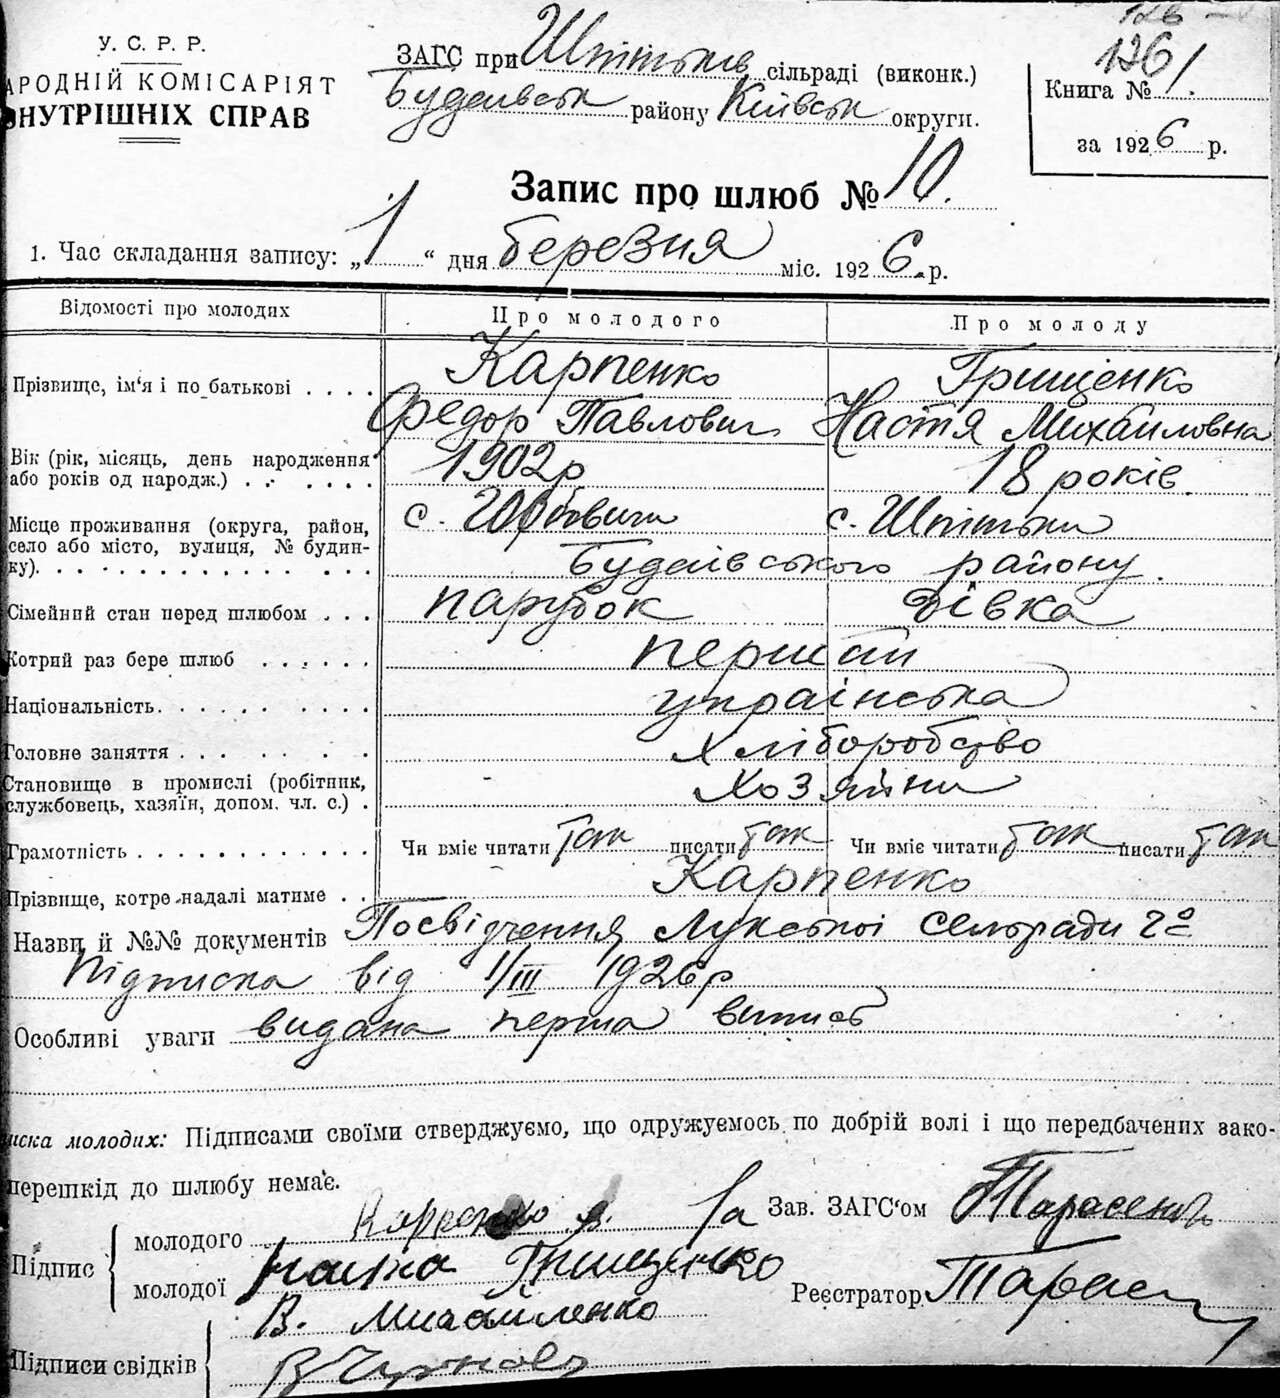 У. С. Р. Р.
АРОДНІЙ КОМІСАРІЯТ
НУТРІШНІХ СПРАВ
ЗАГС при Шпітьків сільраді (виконк.)
Будаївськ району Київськ округи.
126
Книга № 1.
за 1926 р.
Запис про шлюб № 10.
1. Час складання запису: „1“ дня березня міс. 1926 р.
Відомості про молодих
Про молодого
Про молоду
Прізвище, ім'я і по батькові . . . .
Карпенко
Федор Павлович
Грищенко
Настя Михайловна
Вік (рік, місяць, день народження
або років од народж.) . . . . . .
1902 р
18 років.
Місце проживання (округа, район,
село або місто, вулиця, № будин-
ку). . . . . . . . . . . . . . .
с.
с. Шпітьки
Будаївського району.
Сімейний стан перед шлюбом . . .
парубок
дівка
Котрий раз бере шлюб . . . . . .
перший
Національність. . . . . . . . . .
українська
Головне заняття . . . . . . .
хліборобство
Становище в промислі (робітник,
службовець, хазяїн, допом. чл. с.) .
хозяйни
Грамотність . . . . . . . . . . . .
Чи вміє читати так писати так
Чи вміє читати так писати так
Прізвище, котре надалі матиме . .
Карпенко
Назви й №№ документів Посвідчення Сельради
Підписка від 1/III 1926 р
Особливі уваги видана перша випись
иска молодих: Підписами своїми стверджуємо, що одружуємось по добрій волі і що передбачених зако-
перешкід до шлюбу немає.
Підпис
молодого Карпенко
молодої Настя Грищенко
Зав. ЗАГС'ом Тарасенко
Реєстратор Тарасен
Підписи свідків
В. Михайленко